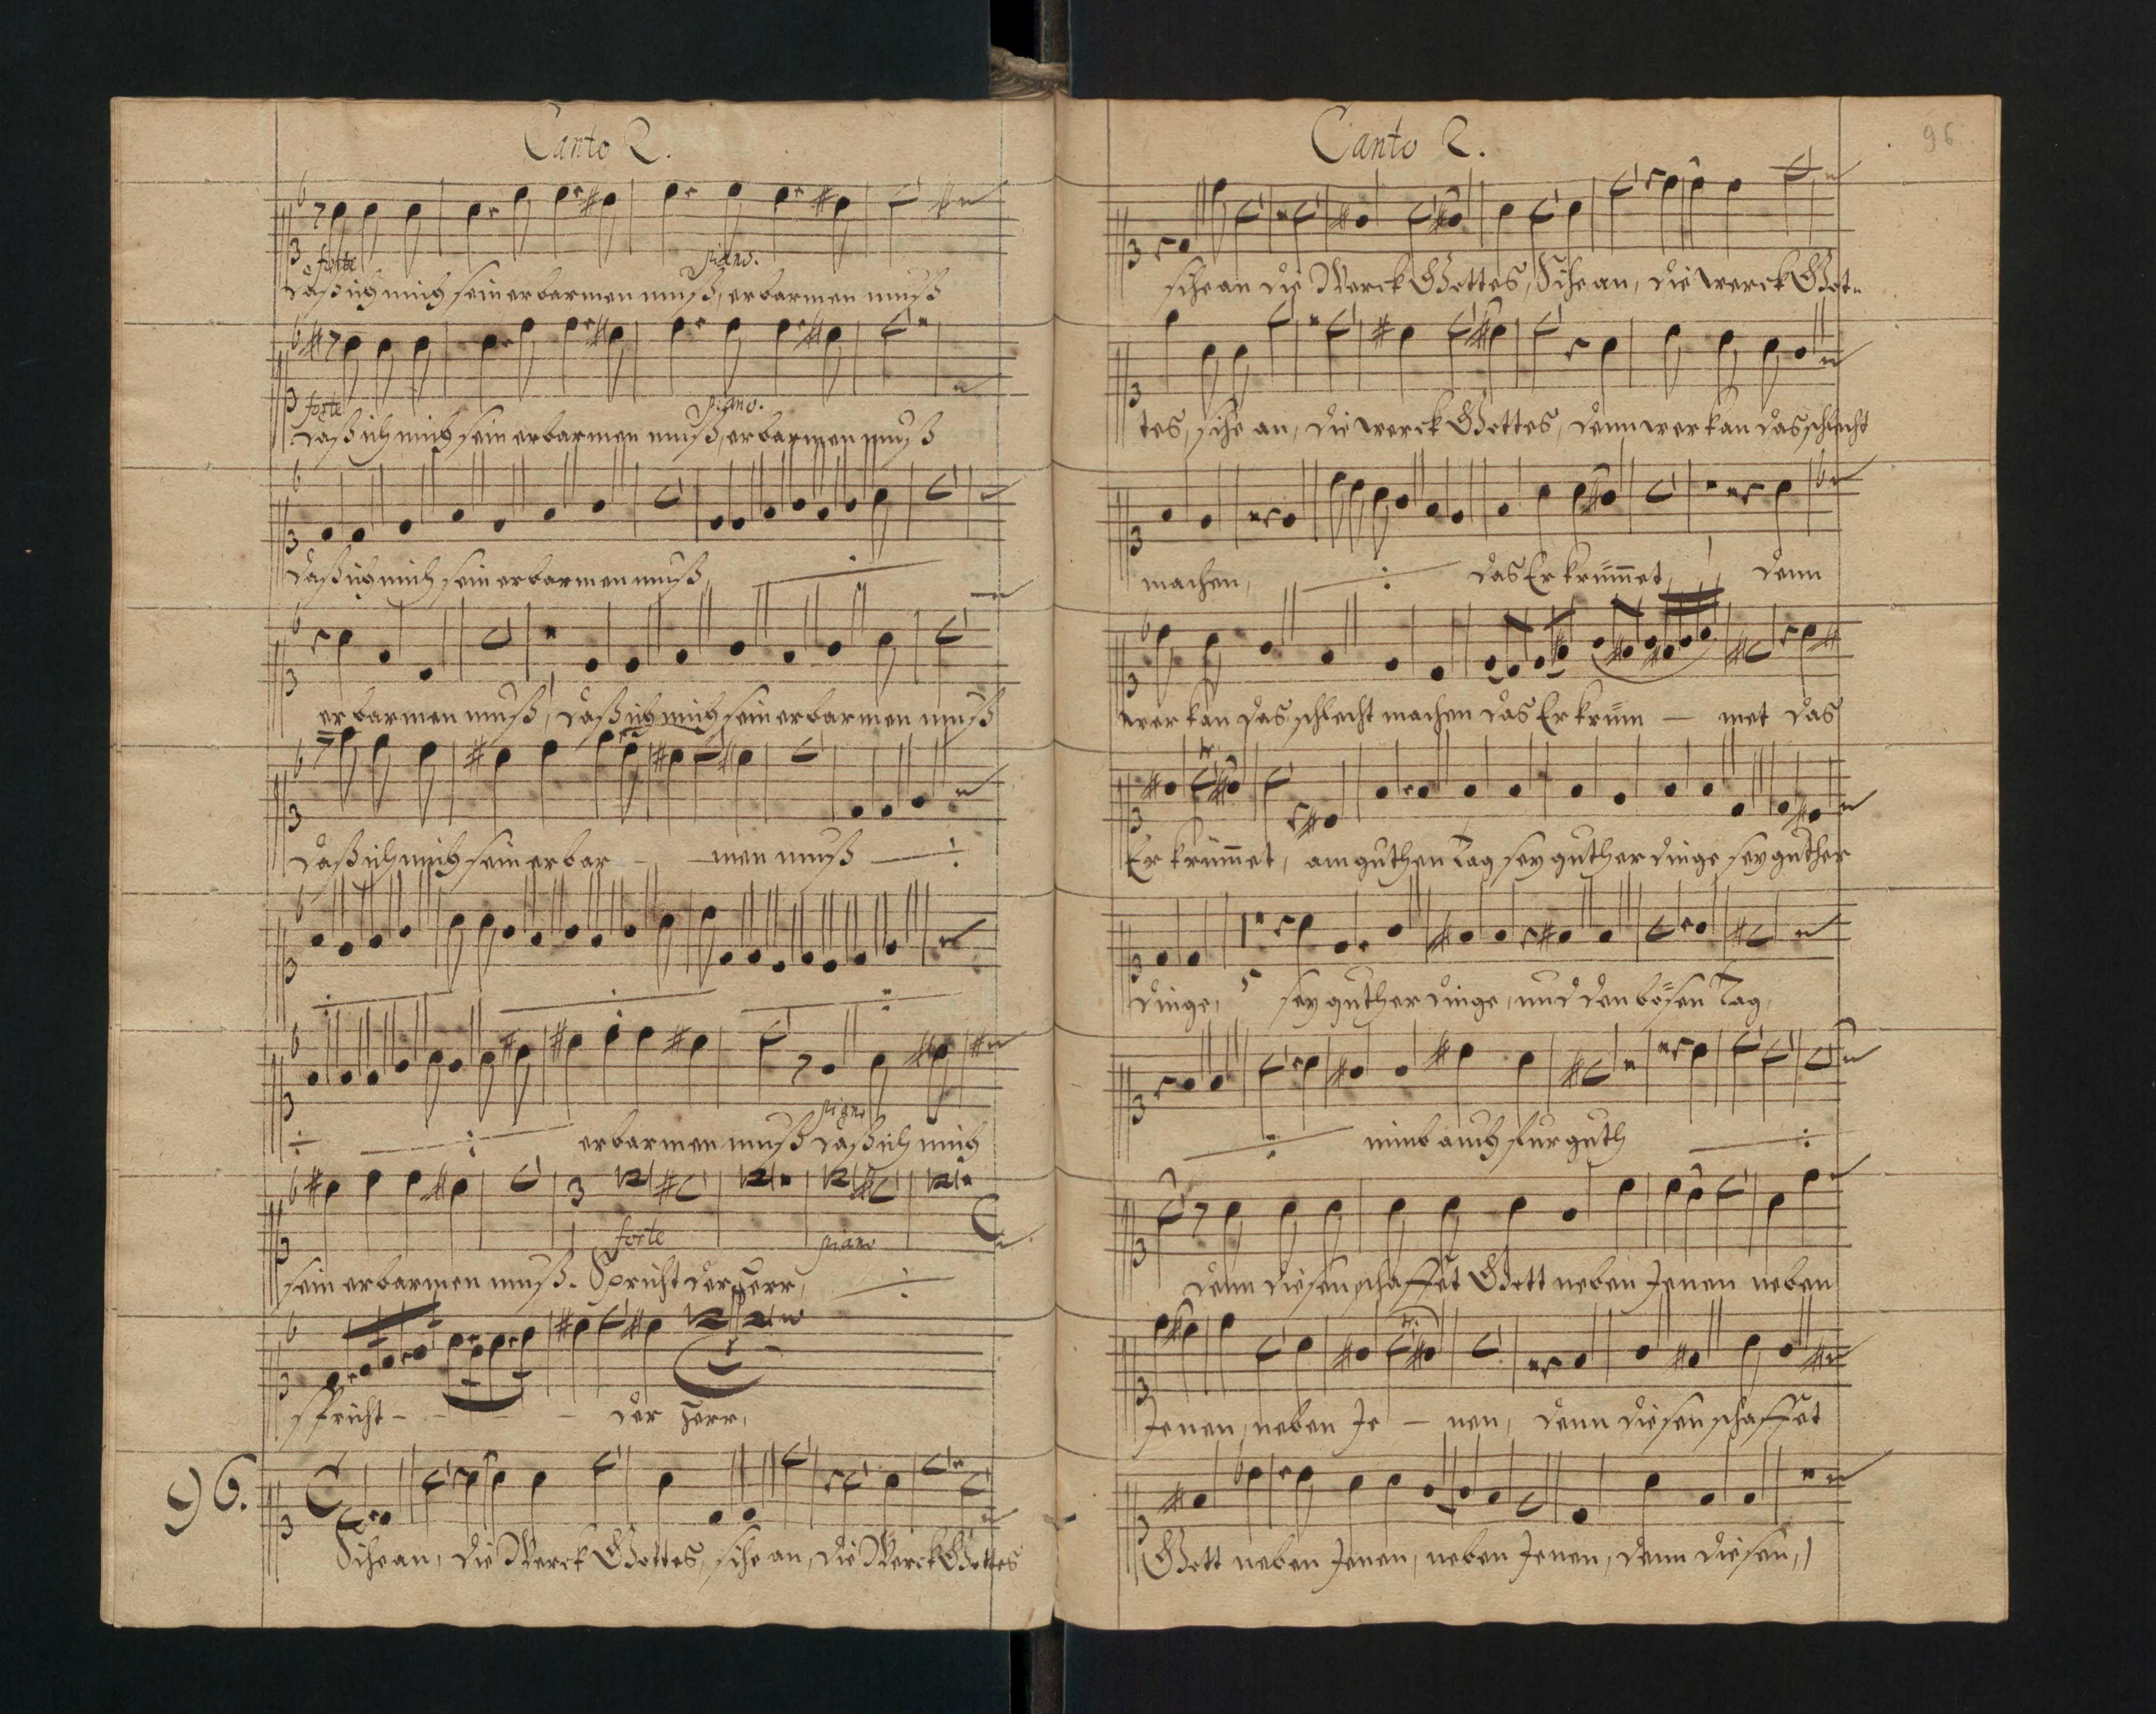 Canto 2.
forte piano.
daß ich mich sein erbarmen muß, erbarmen muß
forte piano.
daß ich mich sein erbarmen muß, erbarmen muß
daß ich mich sein erbarmen muß,
erbarmen muß, daß ich mich sein erbarmen muß
daß ich mich sein erbar - - men muß
piano
erbarmen muß daß ich mich
forte piano
sein erbarmen muß. Spricht der Herr,
spricht - - - - der Herr,
96.
Sihe an, die Werck Gottes, sihe an, die Werck Gottes
Canto 2.
96
sihe an die Werck Gottes, Sihe an, die werck Got-
tes, sihe an, die werck Gottes, denn wer kan das schlecht
machen, das Er krümmet, denn
wer kan das schlecht machen das Er krüm - met das
Er krümmet, am guthen Tag sey guther dinge sey guther
dinge, sey guther dinge, und den bösen Tag,
nimb auch fur guth
denn diesen schaffet Gott neben Jenen neben
Jenen, neben Je - nen, denn diesen schaffet
Gott neben Jenen, neben Jenen, denn diesen,